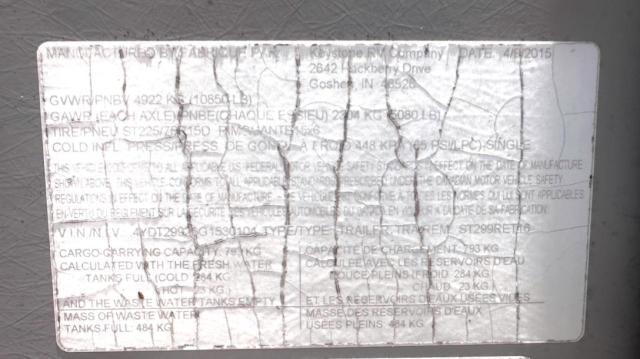 MANUFACTURED BY/FABRIQUE PAR: Keystone RV Company DATE: 4/8/2015
2642 Hackberry Drive
Goshen, IN 46526
GVWR/PNBV 4922 KG (10850 LB)
GAWR (EACH AXLE)/PNBE(CHAQUE ESSIEU) 2304 KG (5080 LB)
TIRE/PNEU RIM/JANTE
COLD INFL. PRESS/PRESS. DE GONFL. À FROID 448 KPA (65 PSI/LPC) SINGLE
THIS VEHICLE CONFORMS TO ALL APPLICABLE U.S. FEDERAL MOTOR VEHICLE SAFETY STANDARDS IN EFFECT ON THE DATE OF MANUFACTURE
SHOWN ABOVE. THIS VEHICLE CONFORMS TO ALL APPLICABLE STANDARDS PRESCRIBED UNDER THE CANADIAN MOTOR VEHICLE SAFETY
REGULATIONS IN EFFECT ON THE DATE OF MANUFACTURE. THE VEHICLE NORMES QUI LUI SONT APPLICABLES
EN VERTU DU RÈGLEMENT SUR LA SÉCURITÉ DES VÉHICULES AUTOMOBILES DU CANADA EN VIGUEUR À LA DATE DE SA FABRICATION.
V I N / N I V TYPE/TYPE: TRAILER TRA/REM ST299RET16
CARGO-CARRYING CAPACITY: 793 KG
CALCULATED WITH THE FRESH WATER
TANKS FULL (COLD 284 KG
HOT KG
AND THE WASTE WATER TANKS EMPTY
MASS OF WASTE WATER
TANKS FULL: 484 KG
CAPACITÉ DE CHARGEMENT: 793 KG
CALCULÉE AVEC LES RÉSERVOIRS D'EAU
DOUCE PLEINS (FROID: 284 KG
CHAUD: 23 KG)
ET LES RÉSERVOIRS D'EAUX USÉES VIDES
MASSE DES RÉSERVOIRS D'EAUX
USÉES PLEINS: 484 KG